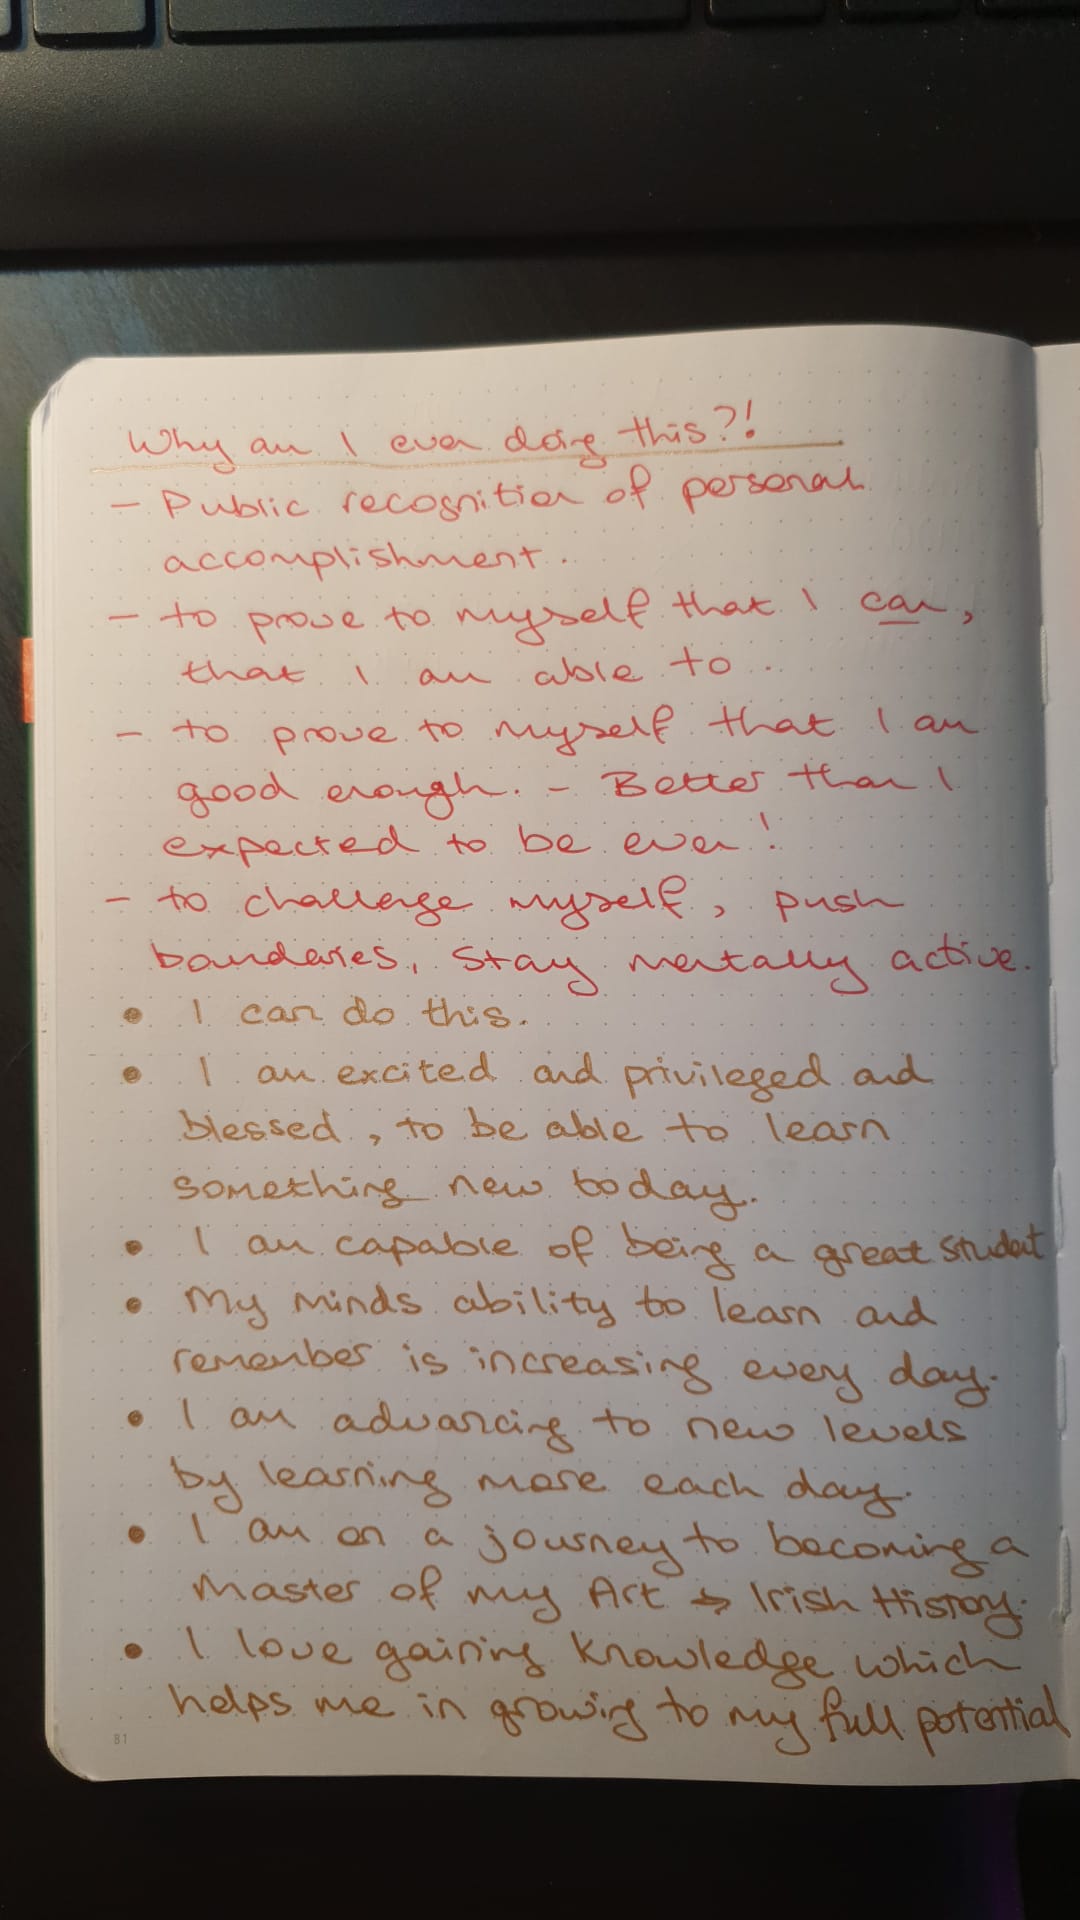 Why am I even doing this?!
- Public recognition of personal
accomplishment.
- to prove to myself that I can,
that I am able to
- to prove to myself that I am
good enough. - Better than I
expected to be even!
- to challenge myself, push
boundaries, stay mentally active.
• I can do this.
• I am excited and privileged and
blessed, to be able to learn
something new today.
• I am capable of being a great student
• My minds ability to learn and
remember is increasing every day.
• I am advancing to new levels
by learning more each day.
• I am on a journey to becoming a
Master of my Art → Irish History.
• I love gaining knowledge which
helps me in growing to my full potential
81